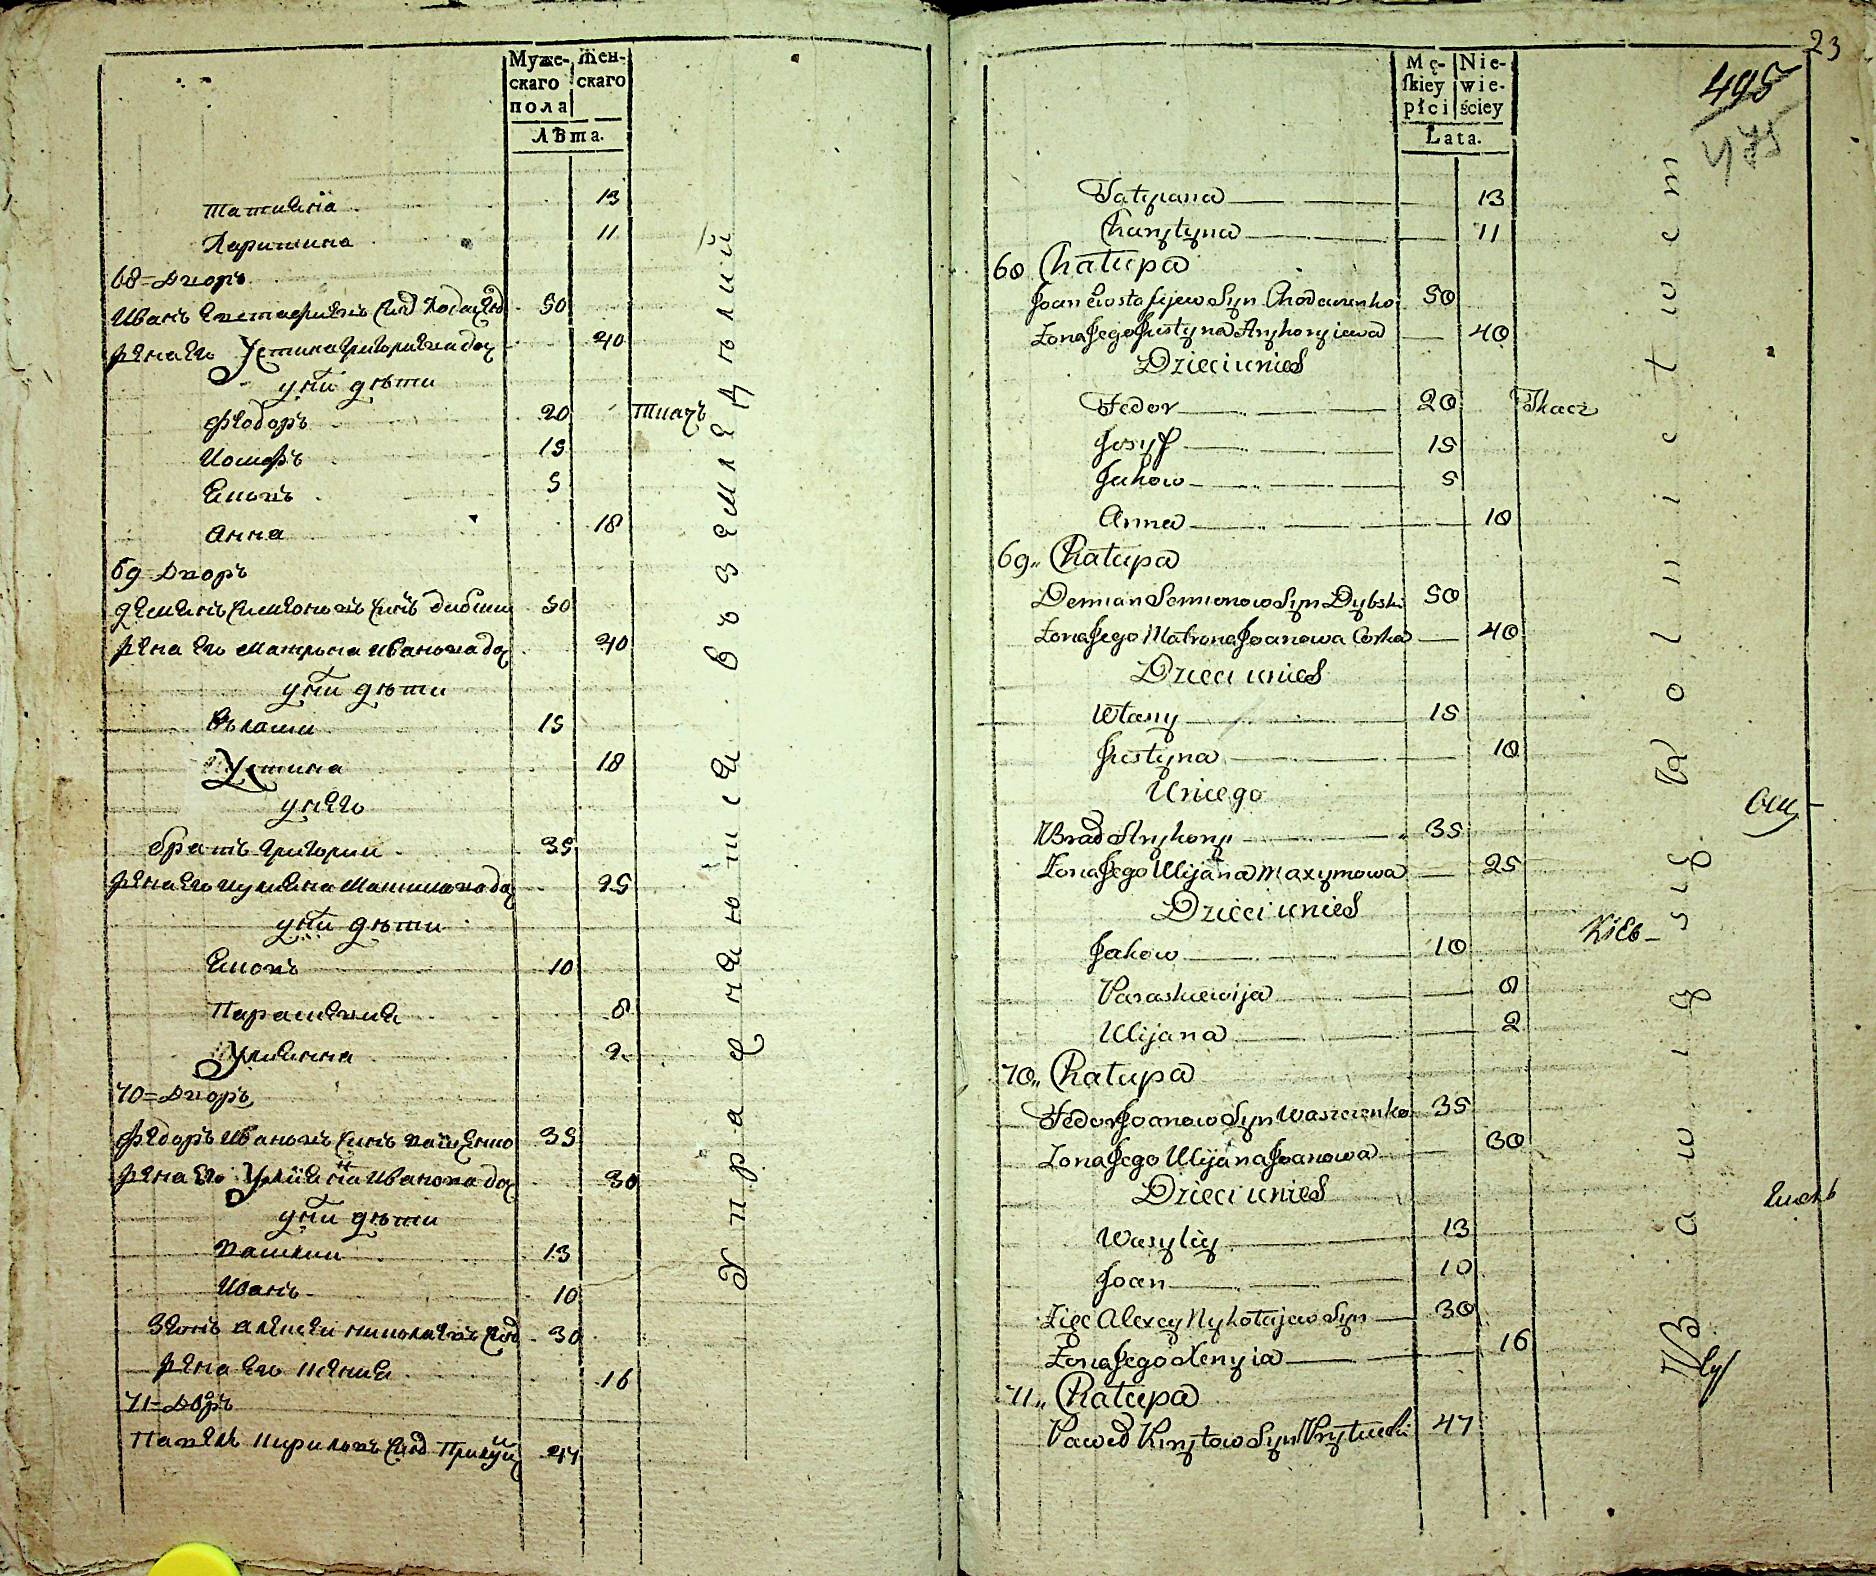 Муже-
скаго
пола
Жен-
скаго
Лѣта.
Татиана 13
Харитина 11
68=Дворъ
Иванъ Евстафиевъ Сынъ 50
жена его Устина Григориева доч 40
у них дѣти
Феодоръ 20 Ткачъ
Иосифъ 15
Яковъ 5
Анна 18
69=Дворъ
Демянъ Симеоновъ Сынъ Дибски 50
жена его Матрона Иванова доч 40
у них дѣти
Власий 15
Устина 18
у него
братъ Григории 35
жена его Максимова доч 25
у них дѣти
Яковъ 10
Параскевия 8
Улиянна 2
70=Дворъ
Федоръ Ивановъ Сынъ Ващенко 35
жена его Улияна Иванова доч 30
у них дѣти
Василии 13
Иванъ 10
Зять Алексеи Николаевъ Сынъ 30
жена его Ксения 16
71=Дворъ
Павелъ Кириловъ Сынъ 47
Упражняются въ земледѣлий
23
495
475
Mę-
skiey
płci
Nie-
wie-
ściey
Lata.
Tatyana 13
Charytyna 11
68 Chałupa
Joan Eustafijew Syn Chodarenko 50
Zona Jego Justyna Hryhoryiewa 40
Dzieci u nich
Fedor 20 Tkacz
Josyf 15
Jakow 5
Anna 18
69„ Chałupa
Demian Semionow Syn Dybski 50
Zona Jego Matrona Joanowa Corka 40
Dzieci u nich
Własy 15
Justyna 18
U niego
Brad Hryhory 35
Zona Jego Ulijana Maxymowa 25
Dzieci u nich
Jakow 10
Paraskiewija 8
Ulijana 2
70„ Chałupa
Fedor Joanow Syn Waszczenko 35
Zona Jego Ulijana Joanowa 30
Dzieci u nich
Wasyliy 13
Joan 10
Zięc Alexey Nykołajew Syn 30
Zona Jego Xenyia 16
71„ Chałupa
Paweł Kiryłow Syn 47
Bawią się Rolnictwem